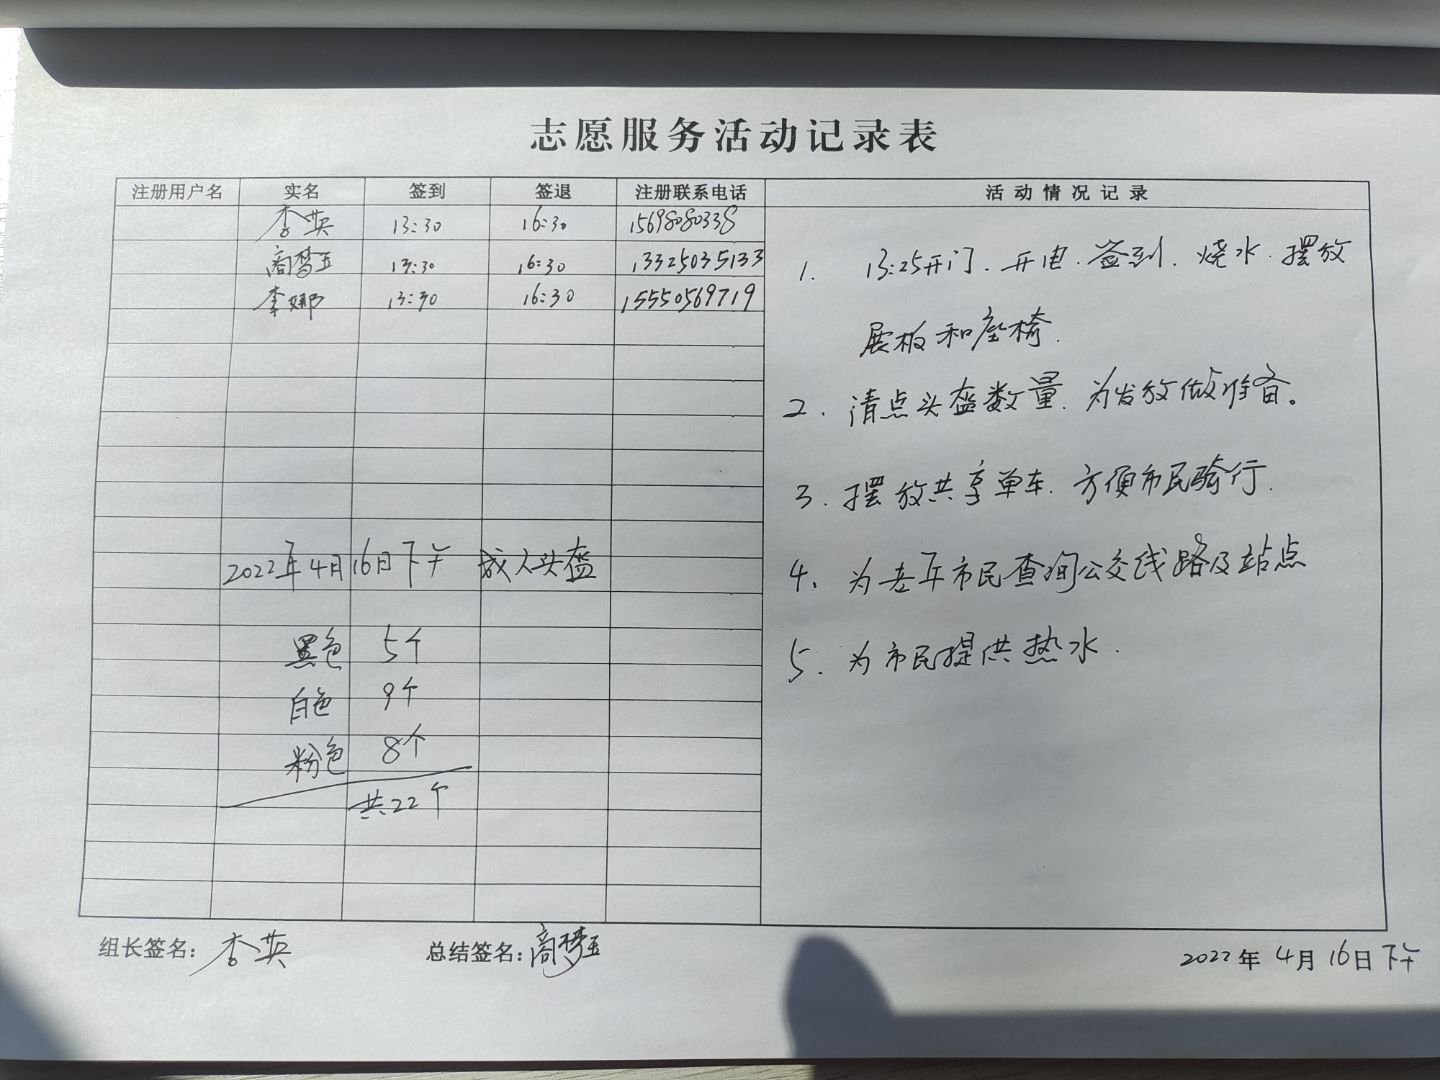 志愿服务活动记录表
注册用户名 实名 签到 签退 注册联系电话 活动情况记录
李英 13:30 16:30 15698080338
商梦玉 13:30 16:30 13325035133
李娜 13:30 16:30 15550569719
1. 13:25开门、开电、签到、烧水、摆放
展板和座椅.
2. 清点头盔数量、为发放做准备。
3. 摆放共享单车、方便市民骑行.
4. 为老年市民查询公交线路及站点
5. 为市民提供热水.
2022年4月16日下午 成人头盔
黑色 5个
白色 9个
粉色 8个
共22个
组长签名: 李英 总结签名: 商梦玉 2022年4月16日下午